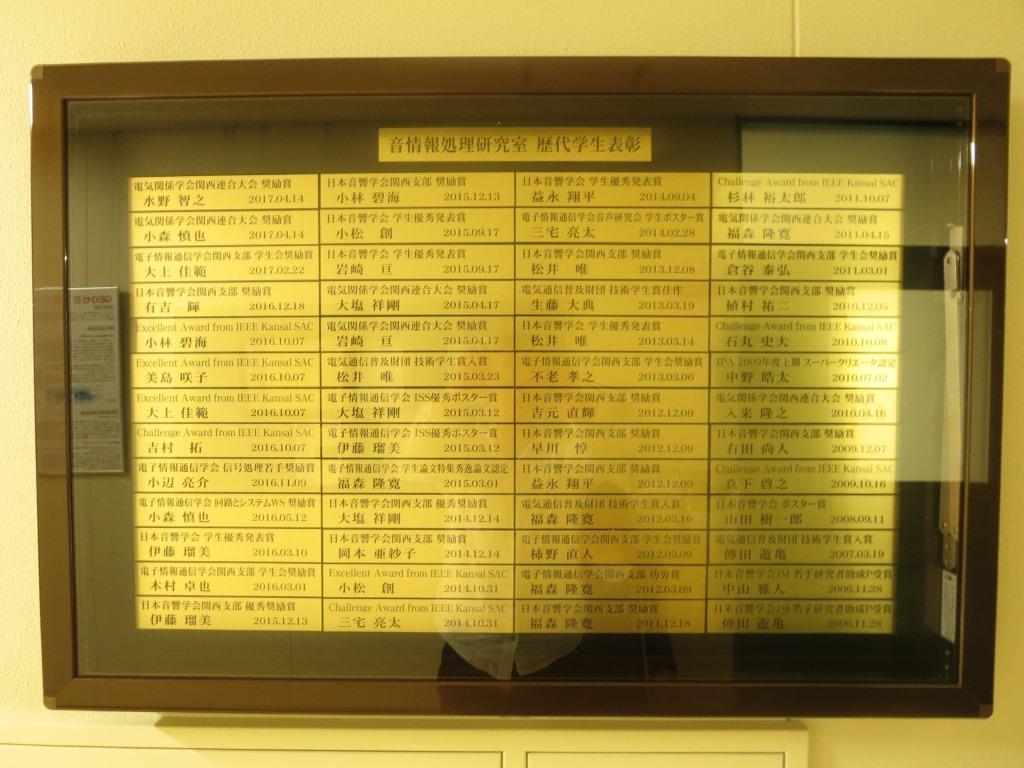 音情報処理研究室 歴代学生表彰
電気関係学会関西連合大会 奨励賞
水野 智之 2017.04.14
電気関係学会関西連合大会 奨励賞
小森 慎也 2017.04.14
電子情報通信学会関西支部 学生会奨励賞
大上 佳範 2017.02.22
日本音響学会関西支部 奨励賞
有吉 輝 2016.12.18
Excellent Award from IEEE Kansai SAC
小林 碧海 2016.10.07
Excellent Award from IEEE Kansai SAC
美島 咲子 2016.10.07
Excellent Award from IEEE Kansai SAC
大上 佳範 2016.10.07
Challenge Award from IEEE Kansai SAC
吉村 拓 2016.10.07
電子情報通信学会 信号処理若手奨励賞
小辺 亮介 2016.11.09
電子情報通信学会 回路とシステムWS 奨励賞
小森 慎也 2016.05.12
日本音響学会 学生優秀発表賞
伊藤 瑠美 2016.03.10
電子情報通信学会関西支部 学生会奨励賞
木村 卓也 2016.03.01
日本音響学会関西支部 優秀奨励賞
伊藤 瑠美 2015.12.13
日本音響学会関西支部 奨励賞
小林 碧海 2015.12.13
日本音響学会 学生優秀発表賞
小松 創 2015.09.17
日本音響学会 学生優秀発表賞
岩崎 亘 2015.09.17
電気関係学会関西連合大会 奨励賞
大塩 祥剛 2015.04.17
電気関係学会関西連合大会 奨励賞
岩崎 亘 2015.04.17
電気通信普及財団 技術学生賞入賞
松井 唯 2015.03.23
電子情報通信学会 ISS優秀ポスター賞
大塩 祥剛 2015.03.12
電子情報通信学会 ISS優秀ポスター賞
伊藤 瑠美 2015.03.12
電子情報通信学会 学生論文特集秀逸論文認定
福森 隆寛 2015.03.01
日本音響学会関西支部 優秀奨励賞
大塩 祥剛 2014.12.14
日本音響学会関西支部 奨励賞
岡本 亜紗子 2014.12.14
Excellent Award from IEEE Kansai SAC
小松 創 2014.10.31
Challenge Award from IEEE Kansai SAC
三宅 亮太 2014.10.31
日本音響学会 学生優秀発表賞
益永 翔平 2014.09.04
電子情報通信学会音声研究会 学生ポスター賞
三宅 亮太 2014.02.28
日本音響学会関西支部 奨励賞
松井 唯 2013.12.08
電気通信普及財団 技術学生賞佳作
生藤 大典 2013.03.19
日本音響学会 学生優秀発表賞
松井 唯 2013.03.14
電子情報通信学会関西支部 学生会奨励賞
不老 孝之 2013.03.06
日本音響学会関西支部 奨励賞
吉元 直輝 2012.12.09
日本音響学会関西支部 奨励賞
早川 惇 2012.12.09
日本音響学会関西支部 奨励賞
益永 翔平 2012.12.09
電気通信普及財団 技術学生賞入賞
福森 隆寛 2012.03.19
電子情報通信学会関西支部 学生会奨励賞
柿野 直人 2012.03.09
電子情報通信学会関西支部 功労賞
福森 隆寛 2012.03.09
日本音響学会関西支部 奨励賞
福森 隆寛 2011.12.18
Challenge Award from IEEE Kansai SAC
杉林 裕太郎 2011.10.07
電気関係学会関西連合大会 奨励賞
福森 隆寛 2011.04.15
電子情報通信学会関西支部 学生会奨励賞
倉谷 泰弘 2011.03.01
日本音響学会関西支部 奨励賞
植村 祐二 2010.12.05
Challenge Award from IEEE Kansai SAC
石丸 史大 2010.10.08
IPA 2009年度上期 スーパークリエータ認定
中野 皓太 2010.07.02
電気関係学会関西連合大会 奨励賞
入来 隆之 2010.04.16
日本音響学会関西支部 奨励賞
右田 尚人 2009.12.07
Challenge Award from IEEE Kansai SAC
真下 啓之 2009.10.16
日本音響学会 ポスター賞
山田 樹一郎 2008.09.11
電気通信普及財団 技術学生賞入賞
傳田 遊亀 2007.03.19
日米音響学会JM 若手研究者助成P受賞
中山 雅人 2006.11.28
日米音響学会JM 若手研究者助成P受賞
傳田 遊亀 2006.11.28